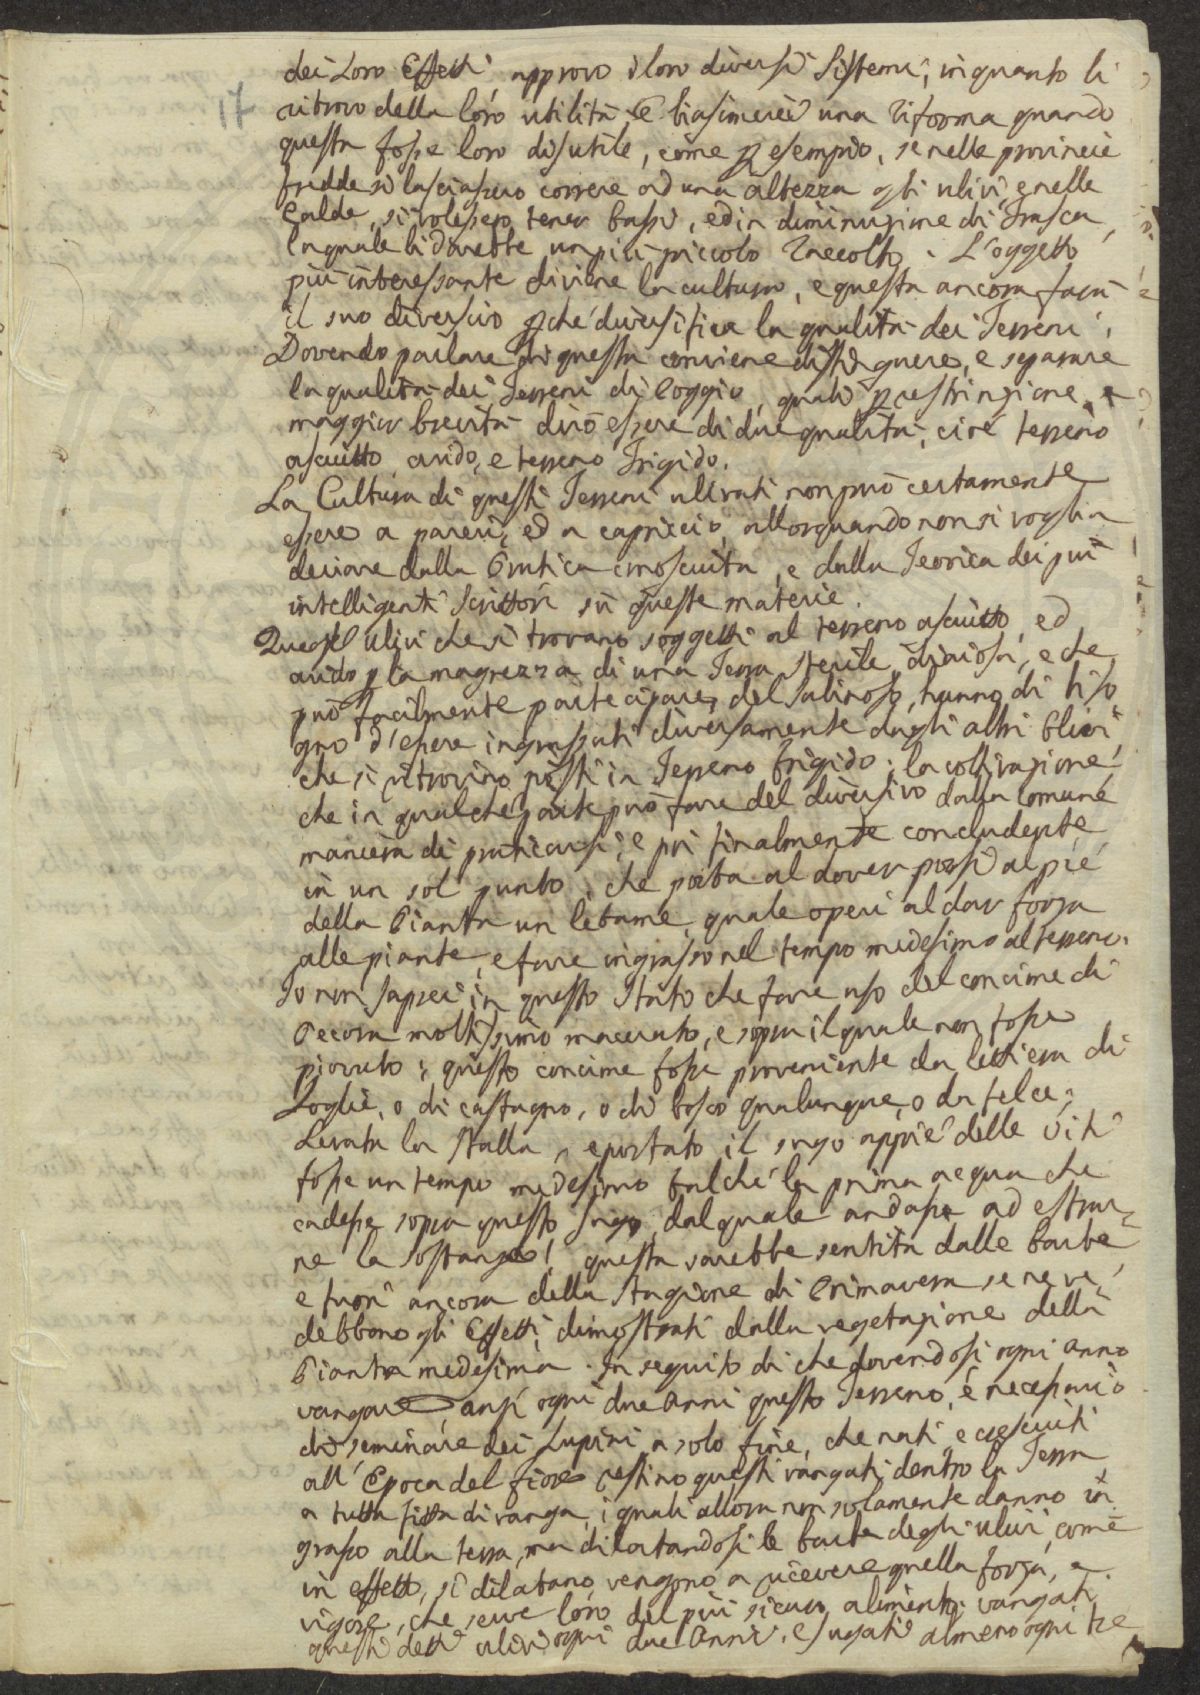 17
dei Loro Effetti approvo i loro diversi Sistemi, in quanto li
ritrovo della loro utilità e biasimerei una riforma quando
questa fosse loro disutile, come p esempio, se nelle provincie
fredde si lasciassero correre ad una altezza gli ulivi, e nelle
Calde, si volessero tener bassi, ed in diminuzione di Frasca,
la quale li darebbe un più piccolo Raccolto. L'oggetto
più interessante diviene la cultura, e questa ancora farà
il suo diversivo pchè diversifica la qualità dei Terreni,
Dovendo parlare di questa conviene distinguere, e separare
la qualità dei Terreni di Poggio, quali p restrinzione, e
maggior brevità dirò essere di due qualità, cioè terreno
asciutto, arido, e terreno Frigido.
La Cultura di questi Terreni ulivati non può certamente
essere a pareri, ed a capriccio, allorquando non si voglia
deviare dalla Pratica conosciuta, e dalla Teorica dei più
intelligenti Scrittori sù queste materie.
Quegl ulivi che si trovano soggetti al terreno asciutto, ed
arido p la magrezza di una Terra sterile, e che
può facilmente partecipare del, hanno di biso
gno d'essere ingrassati diversamente dagli altri Ulivi,
che si ritrovino posti in Terreno frigido; la coltivazione
che in qualche parte può fare del diversivo dalla comune
maniera di praticarsi, e poi finalmente concludente
in un sol punto, che porta al dover porsi al piè
della Pianta un letame, quale operi al dar forza
alle piante, e fare ingrasso nel tempo medesimo al terreno.
Io non saprei in questo Stato che fare uso del concime di
Pecora moltissimo macerato, e sopra il quale non fosse
piovuto; questo concime fosse proveniente da lettiera di
Foglie, o di castagno, o di bosco qualunque, o da felce;
Levata la Stalla, e portato il sugo appiè delle Viti
fosse un tempo medesimo talchè la prima acqua che
cadesse sopra questo sugo, dal quale andasse ad estrar=
ne la sostanza, questa sarebbe sentita dalle barbe
e fuori ancora della Stagione di Primavera se ne ve
debbono gli Effetti dimostrati dalla vegetazione della
Pianta medesima. In seguito di che dovendosi ogni anno
vangare anzi ogni due anni questo Terreno, è necessario
di seminare dei Lupini a solo fine, che nati, e cresciuti
all' Epoca del fiore restino questi vangati dentro la Terra
a tutta fitta di vanga, i quali allora non solamente danno in
grasso alla terra, ma dilatandosi le barbe degli ulivi, come
in effetto, si dilatano, vengono a ricevere quella forza, e
vigore, che serve loro del più sicuro alimento; vangati
questi detti ulivi ogni due anni, e sugati almeno ogni tre